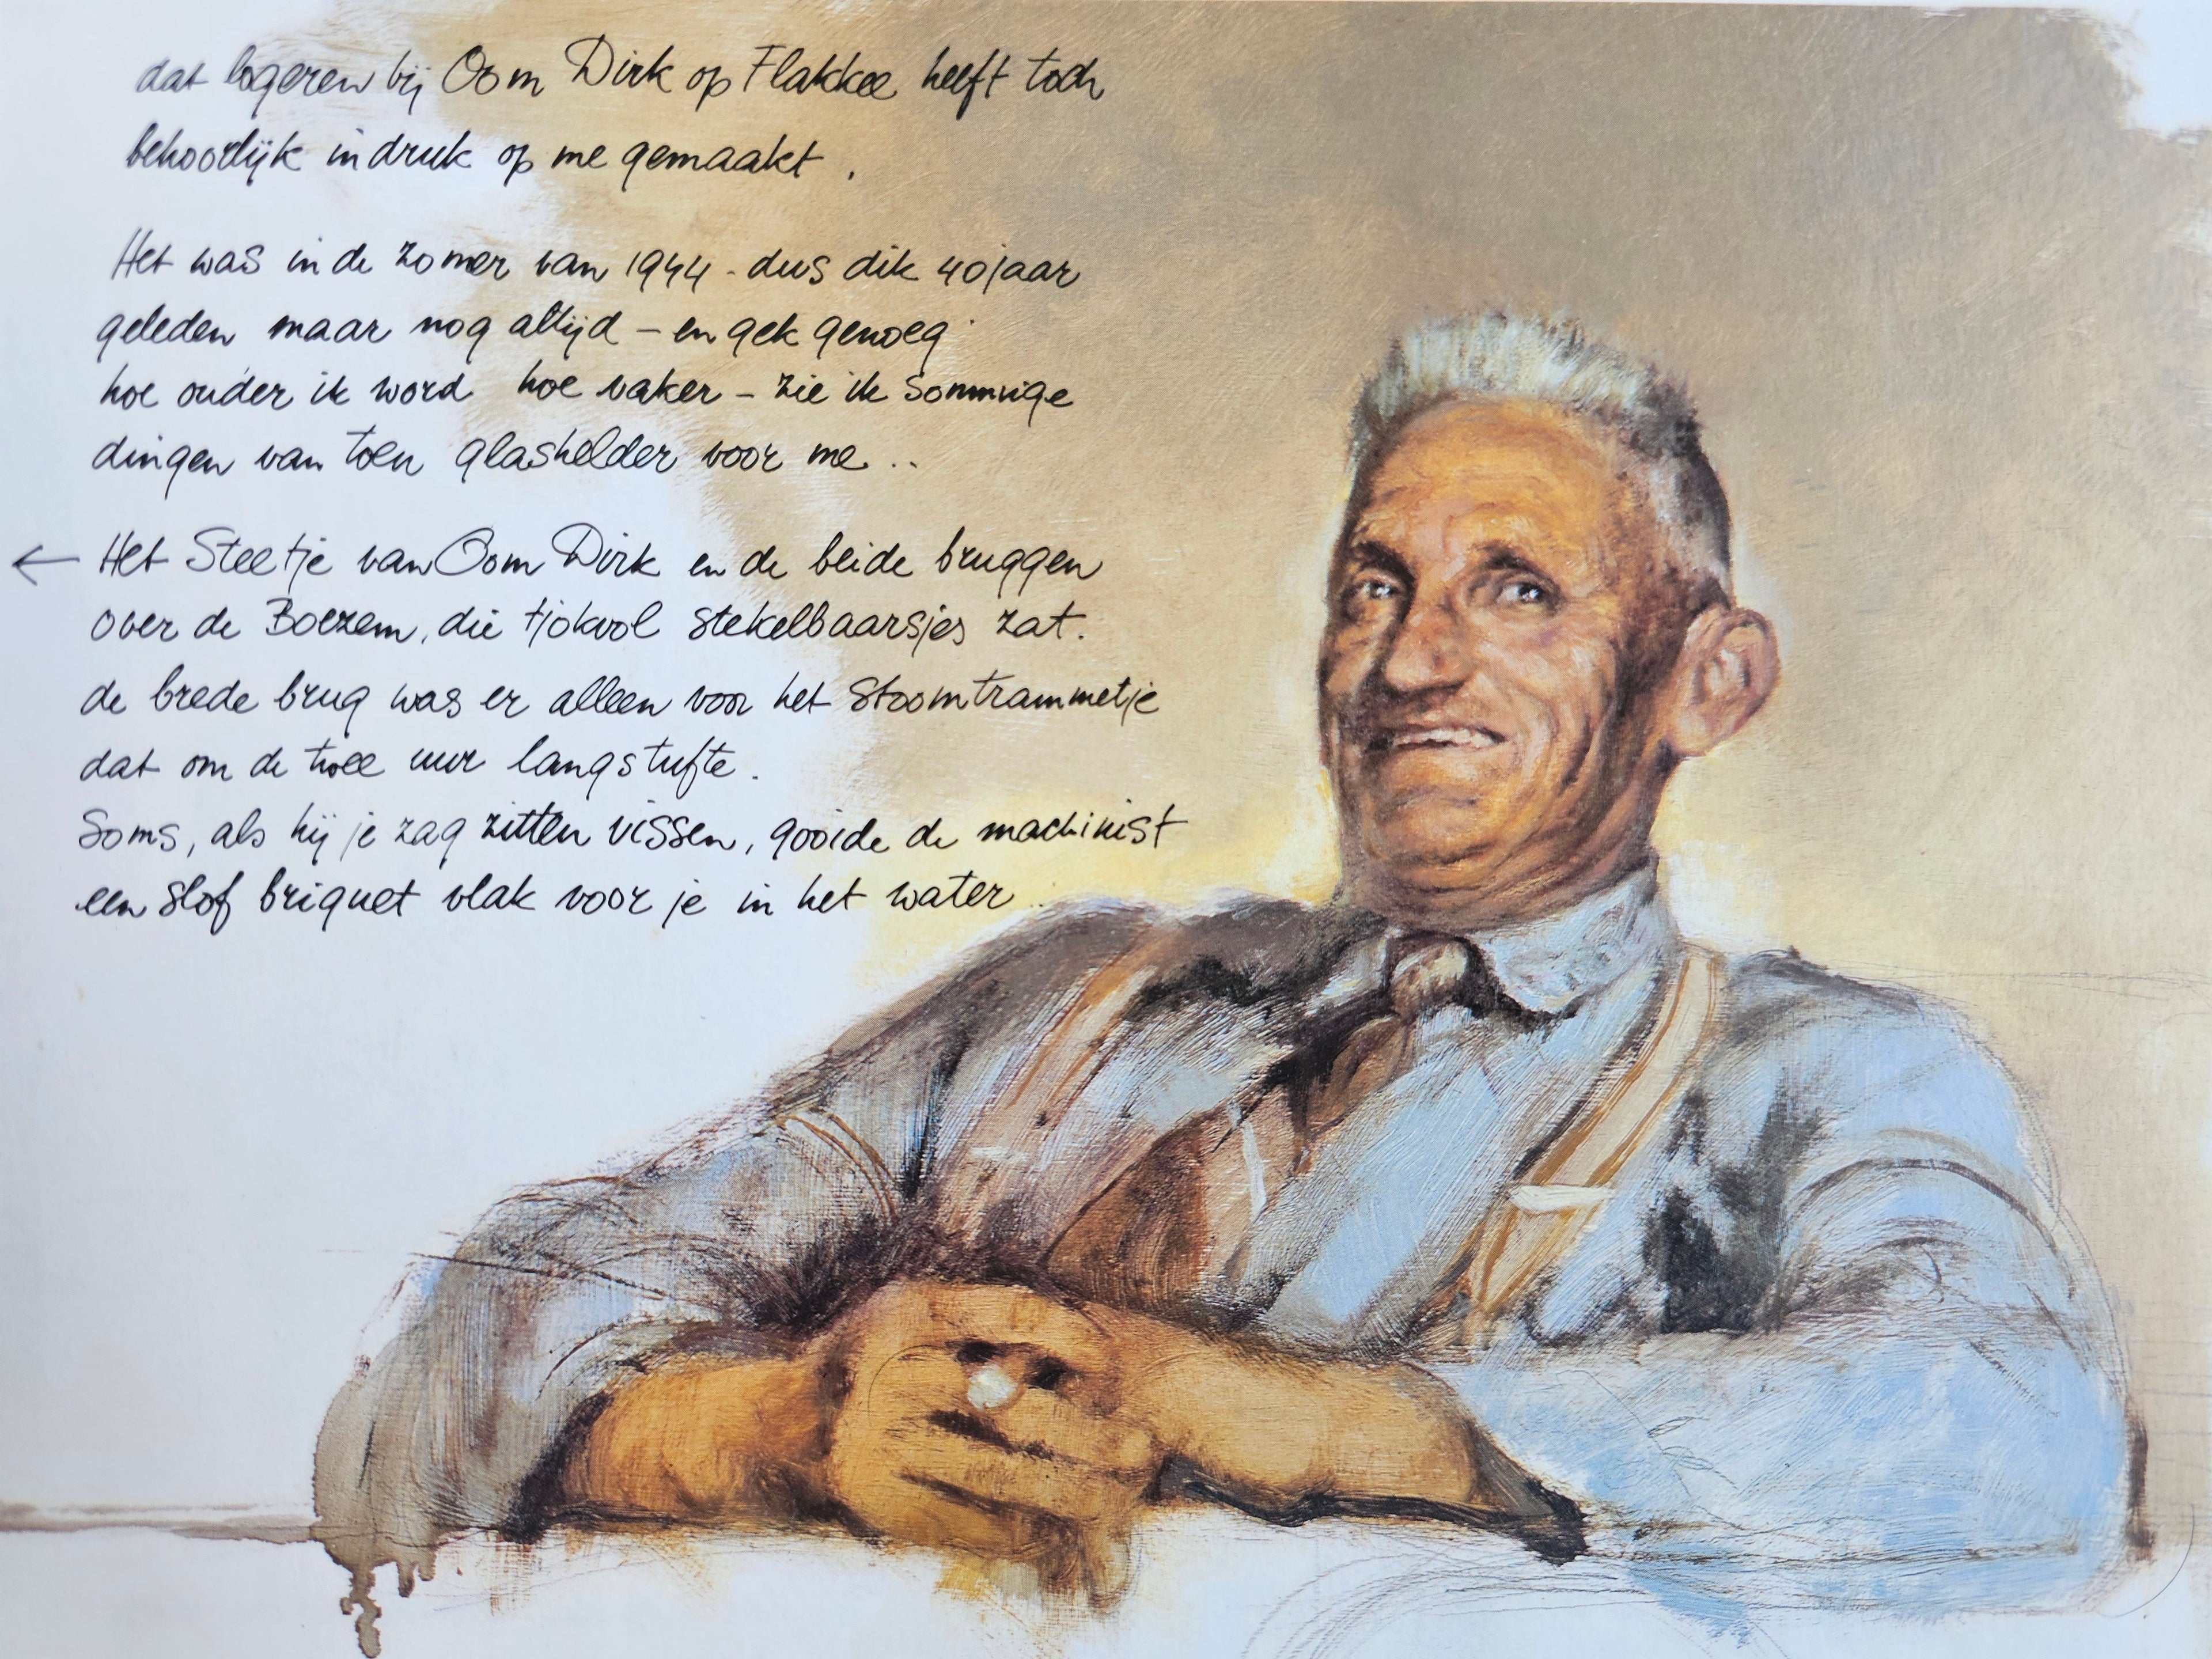 dat logeren bij Oom Dirk op Flakkee heeft toch
behoorlijk indruk op me gemaakt.
Het was in de zomer van 1944 - dus dik 40 jaar
geleden maar nog altijd – en gek genoeg
hoe ouder ik word hoe vaker – zie ik sommige
dingen van toen glashelder voor me...
← Het Steetje van Oom Dirk en de beide bruggen
over de Boezem, die tjokvol stekelbaarsjes zat.
de brede brug was er alleen voor het stoomtrammetje
dat om de twee uur langstufte.
Soms, als hij je zag zitten vissen, gooide de machinist
een slof briquet vlak voor je in het water...